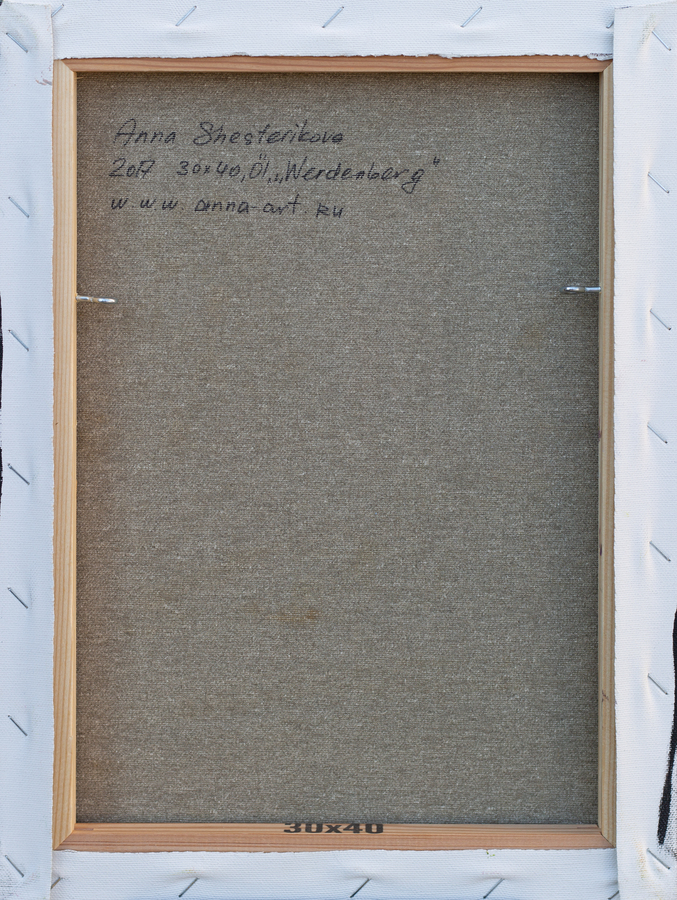 Anna Shesterikova
2017 30x40, Öl, „Werdenberg"
w.w.w. anna-art.ru
30x40